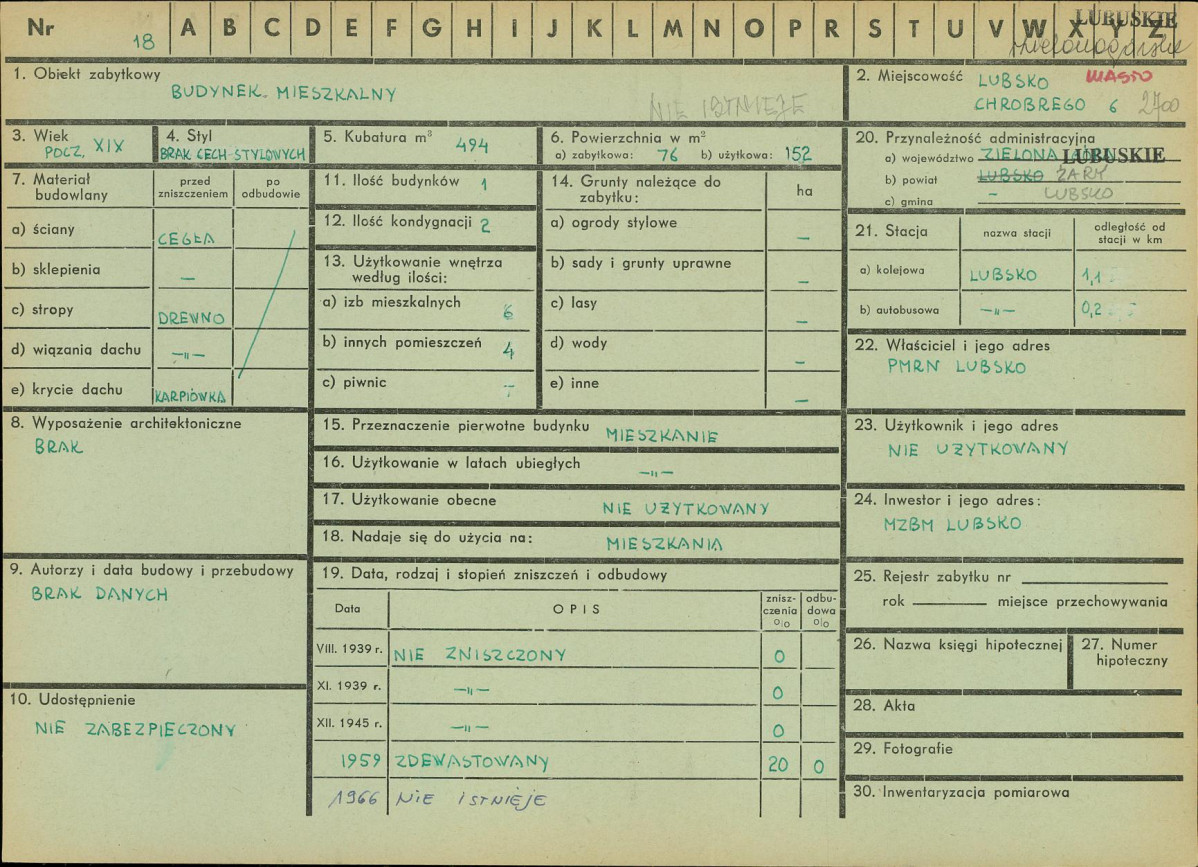 Nr 18 A B C D E F G H I J K L M N O P R S T U V W X Y Z LUBUSKIE
1. Obiekt zabytkowy
BUDYNEK MIESZKALNY
NIE ISTNIEJE
2. Miejscowość LUBSKO MIASTO
CHROBREGO 6 2700
3. Wiek
POCZ. XIX
4. Styl
BRAK CECH STYLOWYCH
5. Kubatura m³ 494
6. Powierzchnia w m²
a) zabytkowa: 76 b) użytkowa: 152
20. Przynależność administracyjna
a) województwo ZIELONA GÓRA LUBUSKIE
b) powiat LUBSKO ŻARY
c) gmina – LUBSKO
7. Materiał budowlany
przed zniszczeniem
po odbudowie
a) ściany CEGŁA
b) sklepienia —
c) stropy DREWNO
d) wiązania dachu —„—
e) krycie dachu KARPIÓWKA
11. Ilość budynków 1
12. Ilość kondygnacji 2
13. Użytkowanie wnętrza
według ilości:
a) izb mieszkalnych 6
b) innych pomieszczeń 4
c) piwnic –
14. Grunty należące do
zabytku: ha
a) ogrody stylowe —
b) sady i grunty uprawne —
c) lasy —
d) wody —
e) inne —
21. Stacja
nazwa stacji
odległość od
stacji w km
a) kolejowa LUBSKO 1,1
b) autobusowa —„— 0,2
22. Właściciel i jego adres
PMRN LUBSKO
8. Wyposażenie architektoniczne
BRAK
15. Przeznaczenie pierwotne budynku MIESZKANIE
16. Użytkowanie w latach ubiegłych —„—
17. Użytkowanie obecne NIE UŻYTKOWANY
18. Nadaje się do użycia na: MIESZKANIA
23. Użytkownik i jego adres
NIE UŻYTKOWANY
24. Inwestor i jego adres:
MZBM LUBSKO
9. Autorzy i data budowy i przebudowy
BRAK DANYCH
10. Udostępnienie
NIE ZABEZPIECZONY
19. Data, rodzaj i stopień zniszczeń i odbudowy
Data OPIS znisz-
czenia
o|o
odbu-
dowa
o|o
VIII. 1939 r. NIE ZNISZCZONY 0
XI. 1939 r. —„— 0
XII. 1945 r. —„— 0
1959 ZDEWASTOWANY 20 0
1966 NIE ISTNIEJE
25. Rejestr zabytku nr
rok miejsce przechowywania
26. Nazwa księgi hipotecznej
27. Numer
hipoteczny
28. Akta
29. Fotografie
30. Inwentaryzacja pomiarowa